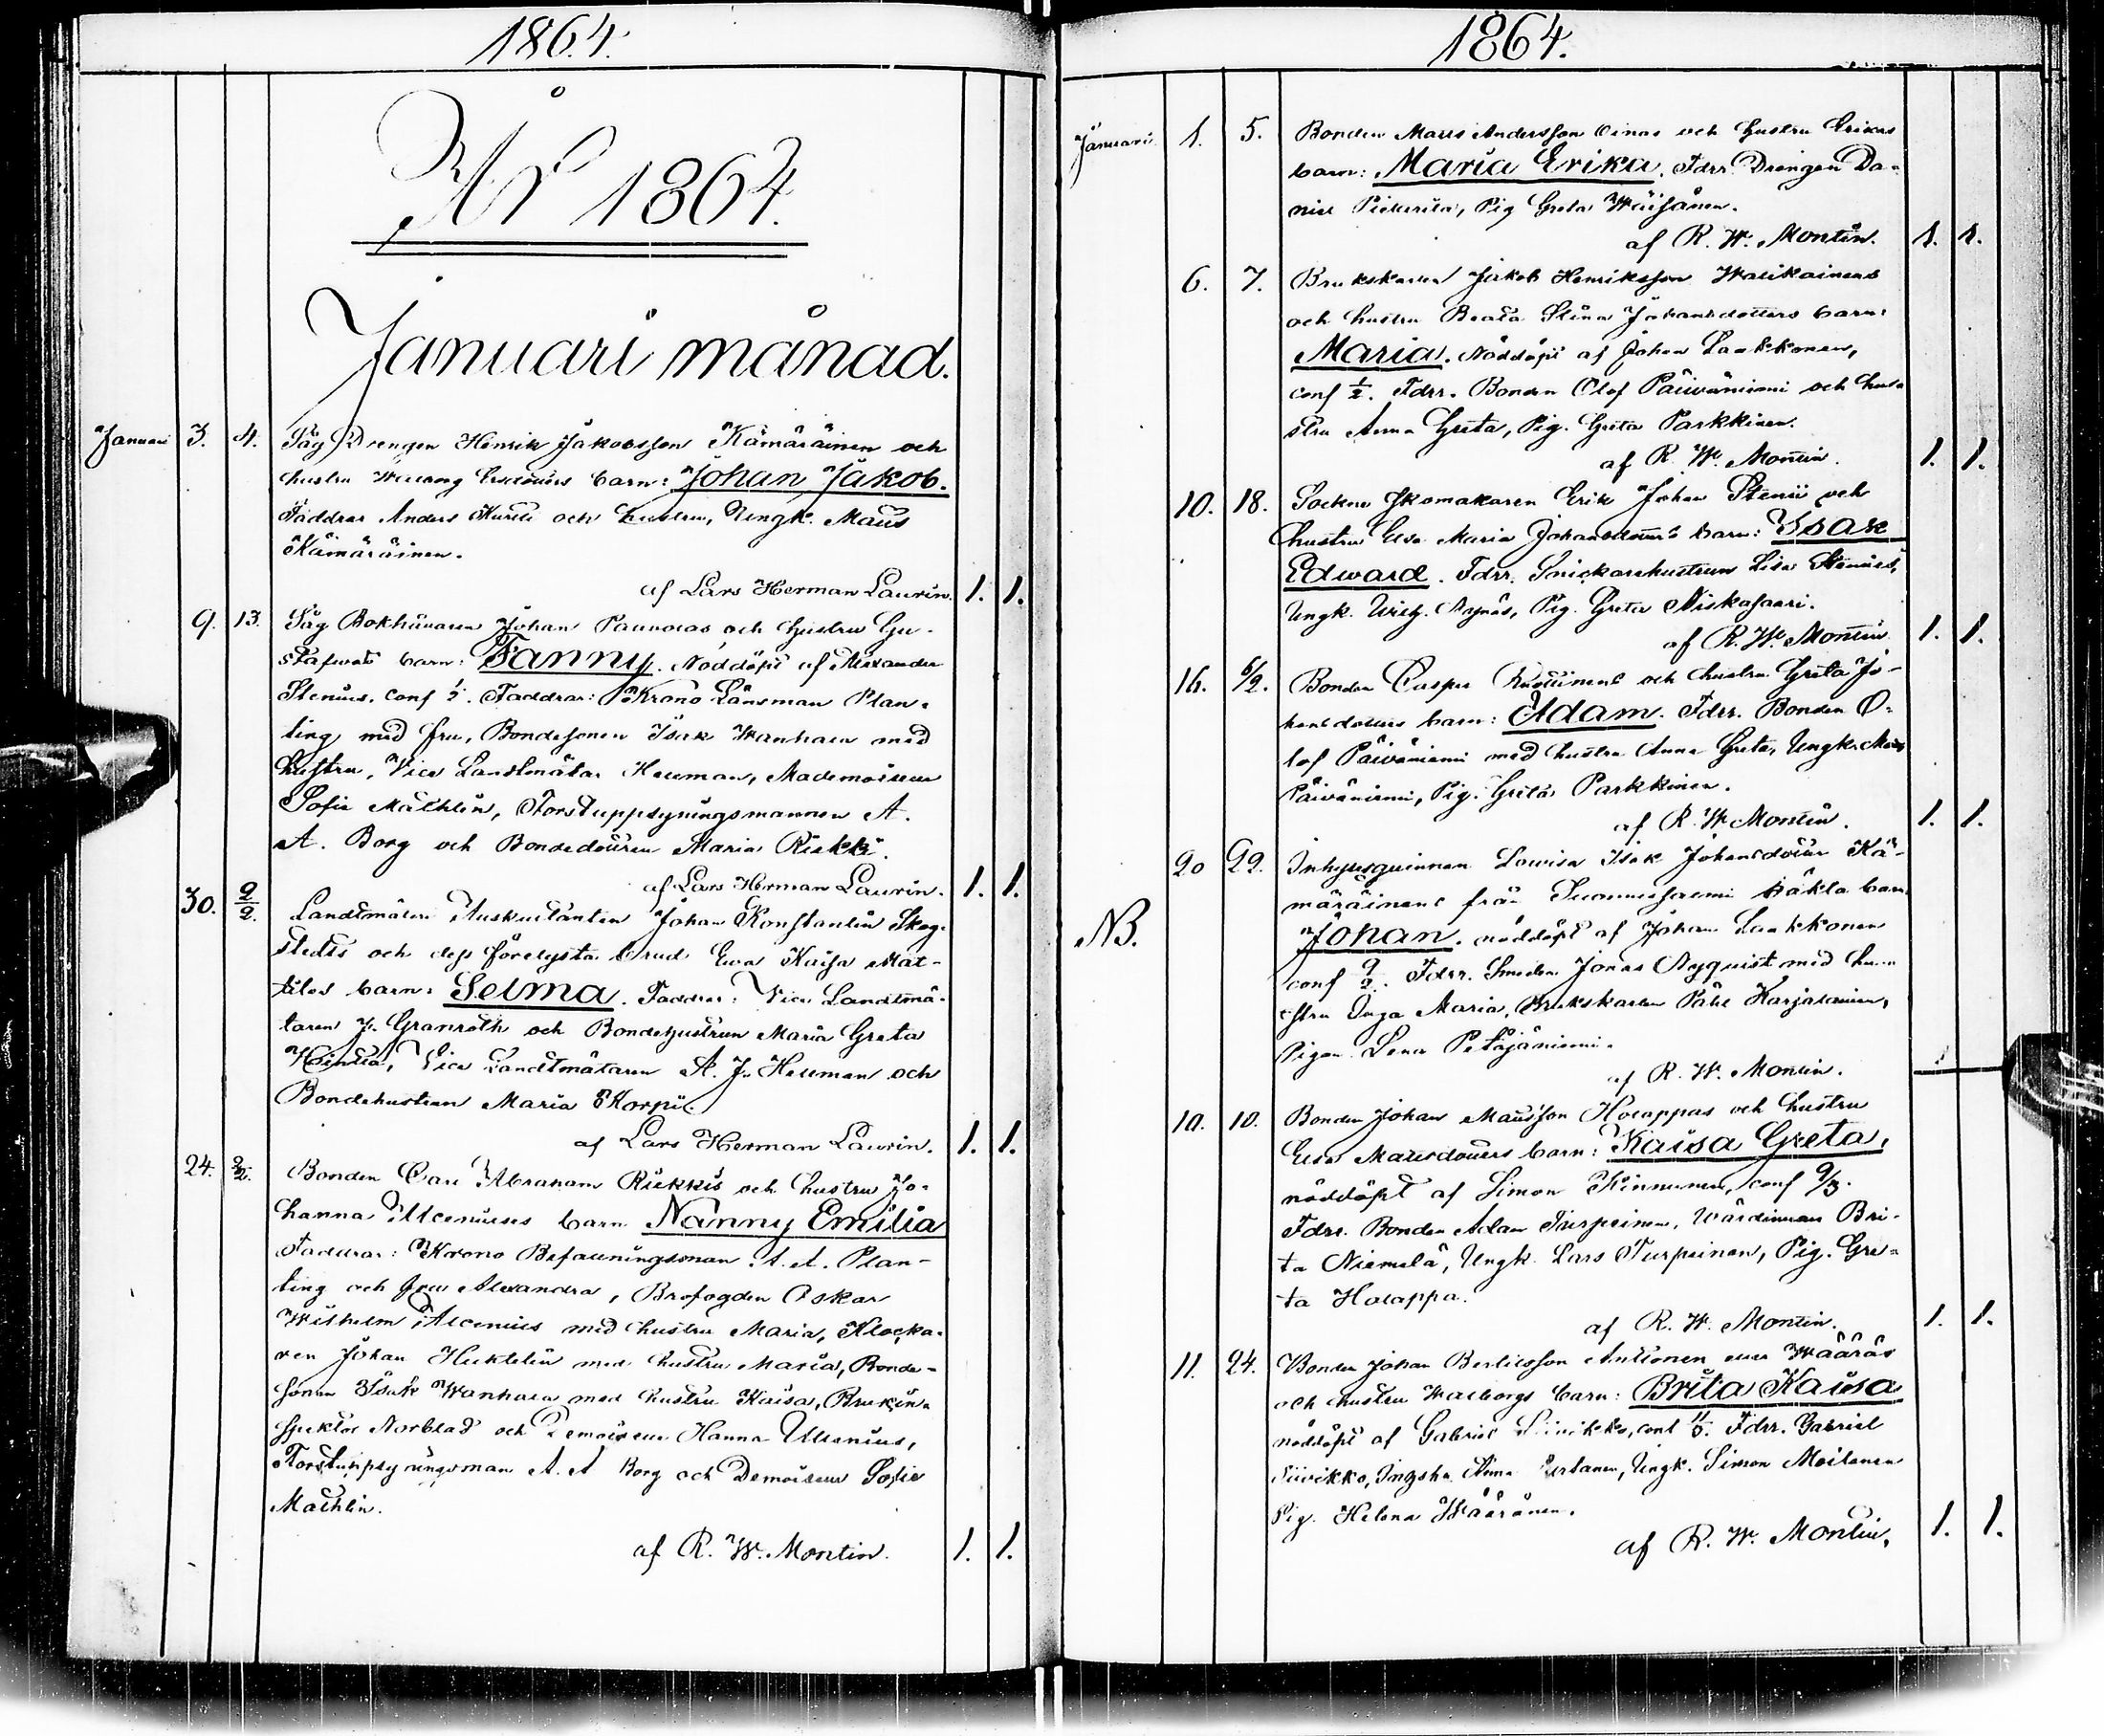 1864.
År 1864.
Januari månad.
Januari 3. 4. Såg Drengen Henrik Jakobsson Kämäräinen och
hustru barn: Johan Jakob.
Faddrar Anders och hustru, Ungk. Mats
Kämäräinen.
af Lars Herman Laurin. 1. 1.
9. 13. Såg Bokhållaren Johan och hustru Gu-
stafwas barn: Fanny. Nöddöpt af Alexander
Stenius. conf Faddrar: Krono Länsman Plan-
ting med fru, Bondesonen Isak Wanhala med
hustru, Vice Landtmätar Heuman, Mademoisell
Sofie Mathlin, Forstuppsyningsmannen A.
A. Borg och Bondedottren Maria Riekki.
af Lars Herman Laurin. 1. 1.
30. 2/2. Landtmäteri Auskultanten Johan Konstantin Skog-
stedts och dess förelysta brud Ewa Kaisa Mat-
tilas barn: Selma. Faddrar: Vice Landtmä-
taren J. Granroth och Bondehustrun Maria Greta
Vice Landtmätaren A. J. Heuman och
Bondehustrun Maria Korpi.
af Lars Herman Laurin. 1. 1.
24. 2/2. Bonden Carl Abraham Riekkis och hustru Jo-
hanna barn Nanny Emilia
Faddrar: Krono Befallningsman A. A. Plan-
ting och fru Alexandra, Brofogden Oskar
Wilhelm med hustru Maria, Klocka-
ren Johan med hustru Maria, Bonde-
sonen Isak Wanhala med hustru Kaisa, Bruksin-
spektor Norblad och Demoisell Hanna
Forstuppsyningsman A. A Borg och Demoisell Sofie
Mathlin.
af R. W. Montin. 1. 1.
1864.
Januari 1. 5. Bonden Mats Andersson Oinas och hustru Erikas
barn: Maria Erika. Fdrr. Drengen Da-
niel Pig Greta Wäisänen.
af R. W. Montin. 1. 1.
6. 7. Brukskarlen Jakob Henriksson
och hustru Beata Stina Johansdotters barn:
Maria. Nöddöpt af Johan Laakkonen,
conf 1/2. Fdrr. Bonden Olof Päiwäniemi och hu-
stru Anna Greta, Pig. Greta Parkkinen.
af R. W. Montin. 1. 1.
10. 18. Sockne Skomakaren Erik Johan Stenii och
hustru Elsa Maria Johansdotters barn: Isak
Edward. Fdrr. Snickarehustrun Lisa Stenius,
Ungk. Wilh. Pig. Greta Niskasaari.
af R. W. Montin 1. 1.
16. 6/2. Bonden Casper och hustru Greta Jo-
hansdotters barn: Adam. Fdrr. Bonden O-
lof Päiwäniemi med hustru Anna Greta, Ungk. Mats
Päiwäniemi, Pig. Greta Parkkinen.
af R. W Montin. 1. 1.
20 22. Inhysesqvinnan Lowisa Isak Johansdotter Kä-
märäinens från Suomussalmi oäkta barn
NB. Johan. nöddöpt af Johan Laakkonen
conf 9/2. Fdrr. Smeden Jonas Nyquist med hu-
stru Inga Maria, Brukskarlen Påhl Karjalainen,
Pigan Lena Petäjäniemi.
af R. W. Montin. 1
10. 10. Bonden Johan Matsson Holappas och hustru
Elsa Matsdotters barn: Kaisa Greta,
nöddöpt af Simon Kinnunen, conf 9/3.
Fdrr. Bonden Adam Turpeinen, Wärdinnan Bri-
ta Niemelä, Ungk. Lars Turpeinen, Pig. Gre-
ta Holappa.
af R. W. Montin. 1. 1.
11. 24. Bonden Johan Bertilsson Anttonen eller Wääräs
och hustru Walborgs barn: Brita Kaisa
nöddöpt af Gabriel Siiwikko, conf Fdrr. Gabriel
Siiwikko, Anna Ungk. Simon Moilanen
Pig. Helena Wääränen.
af R. W. Montin, 1. 1.